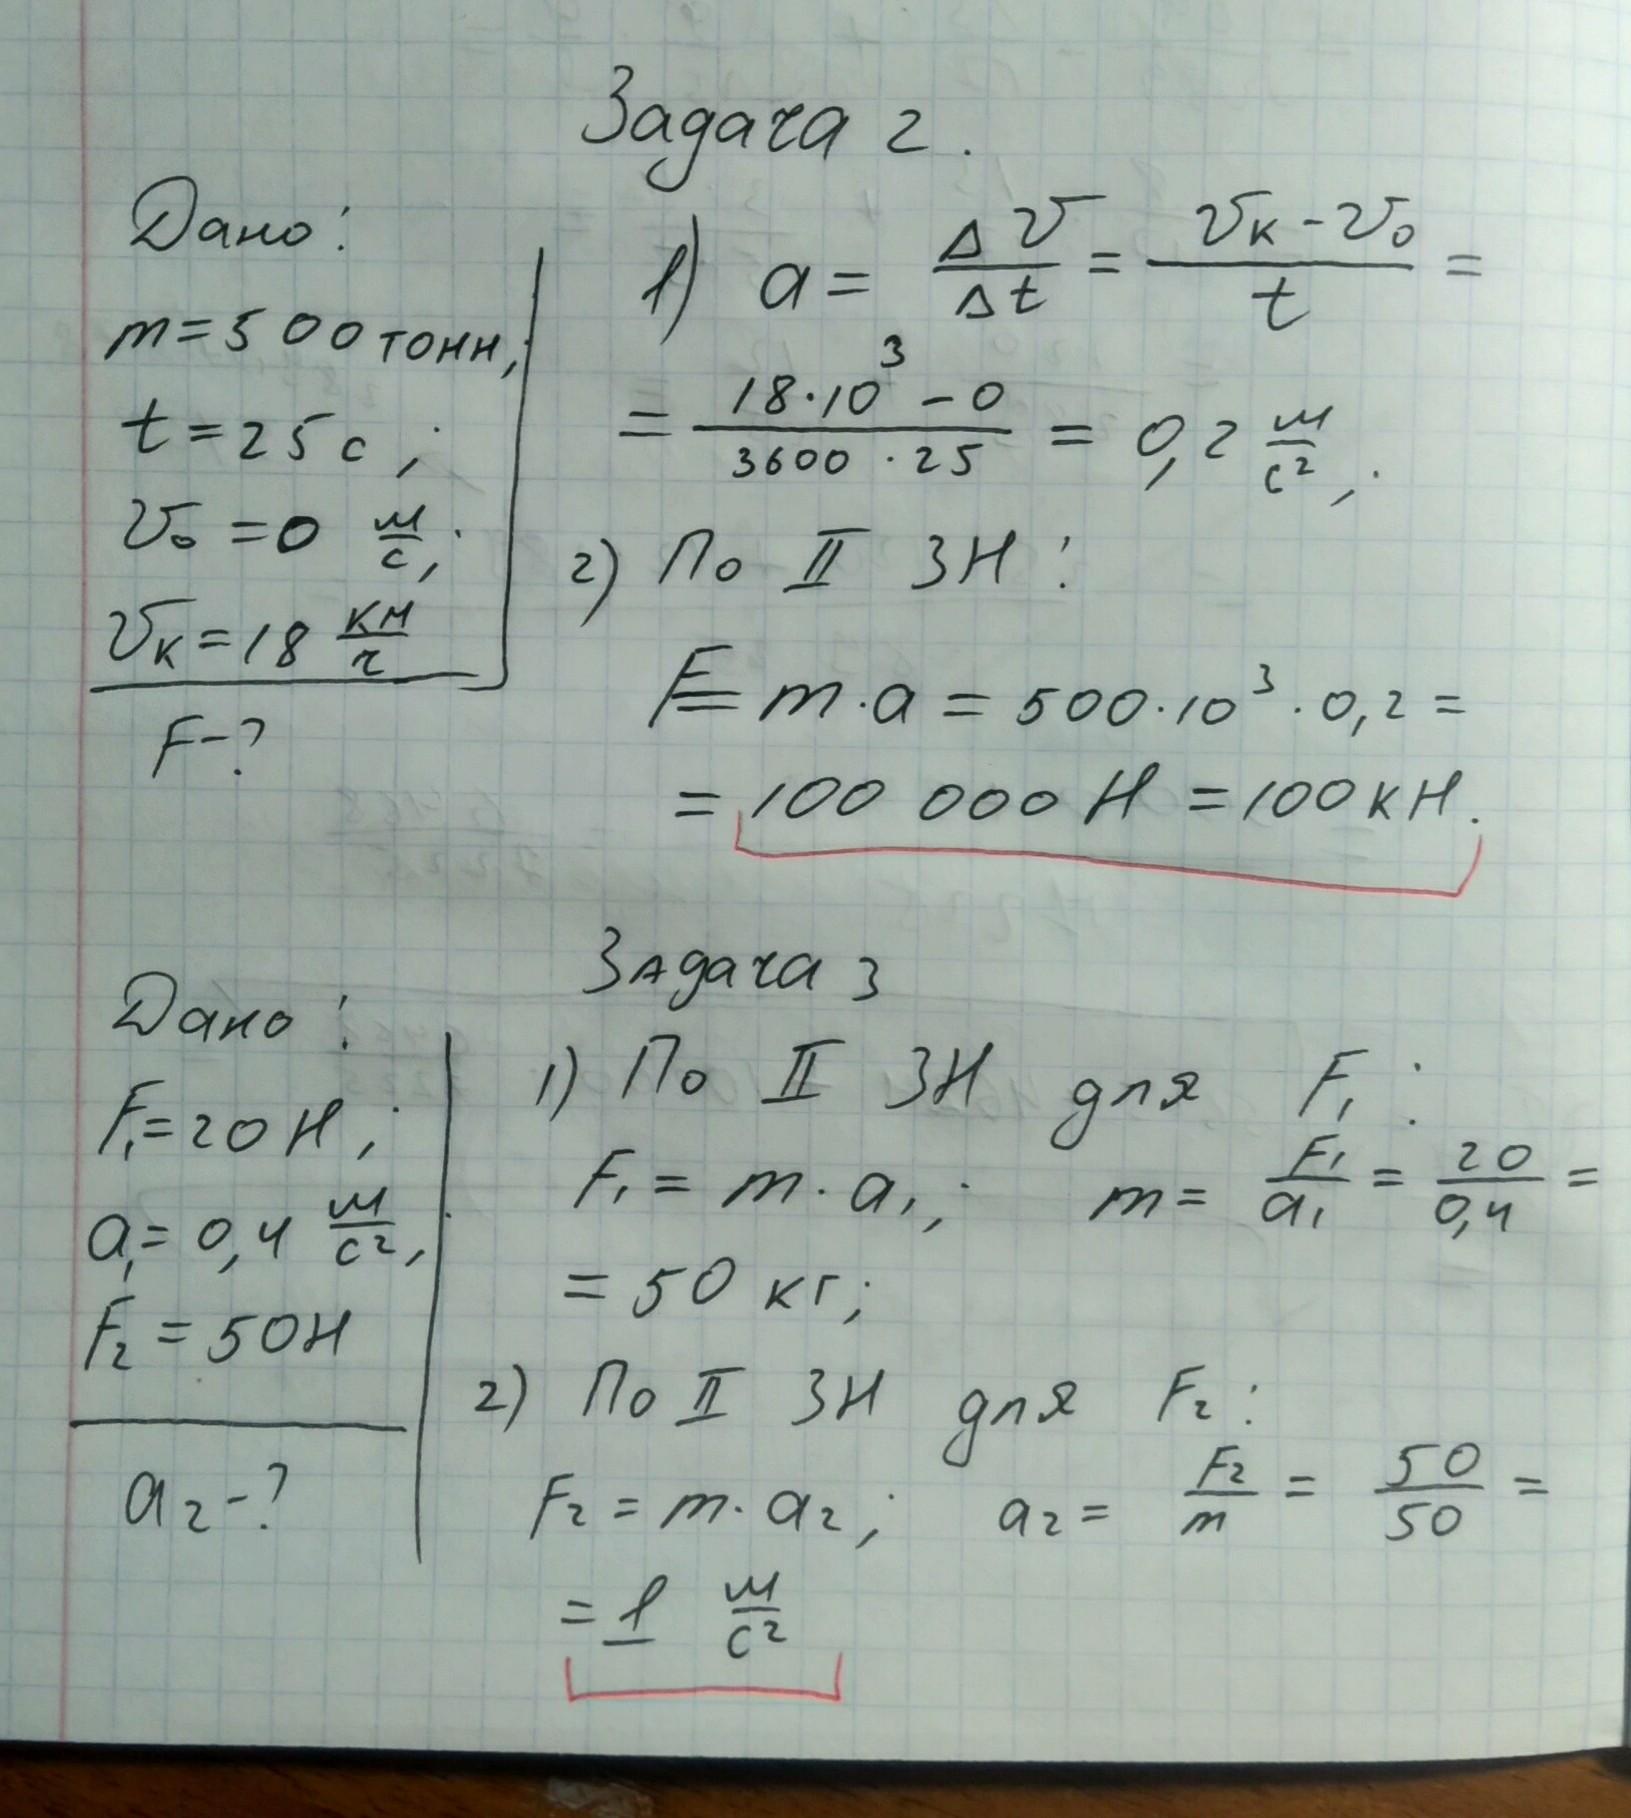 Задача 2.
Дано:
m = 500 тонн;
t = 25 с;
v₀ = 0 м/с;
vк = 18 км/ч
F - ?
1) a = Δv/Δt = (vк - v₀)/t =
= (18·10³ - 0)/(3600·25) = 0,2 м/с²;
2) По II ЗН:
F = m·a = 500·10³·0,2 =
= 100 000 Н = 100 кН.
Задача 3
Дано:
F₁ = 20 Н;
a₁ = 0,4 м/с²;
F₂ = 50 Н
a₂ - ?
1) По II ЗН для F₁:
F₁ = m·a₁; m = F₁/a₁ = 20/0,4 =
= 50 кг;
2) По II ЗН для F₂:
F₂ = m·a₂; a₂ = F₂/m = 50/50 =
= 1 м/с²